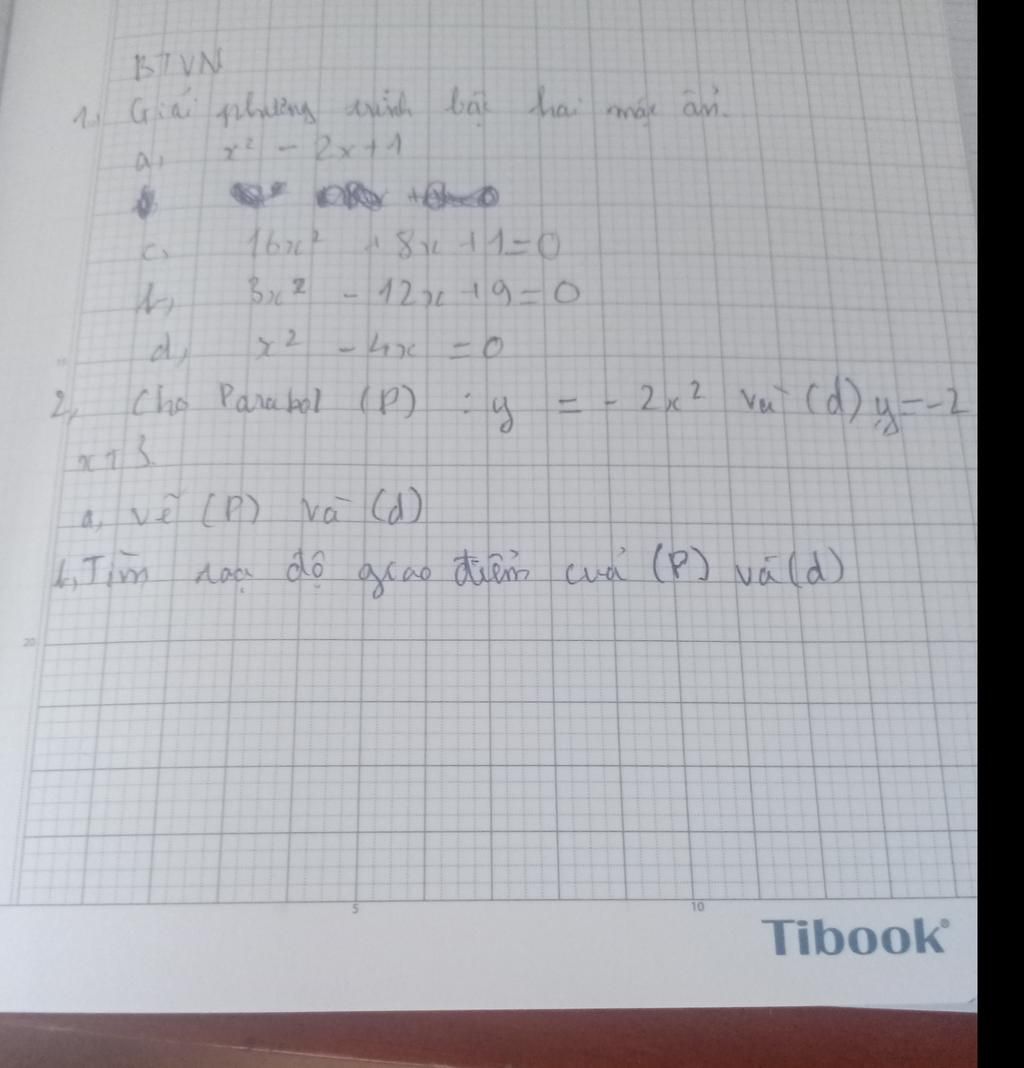 BTVN
1, Giải phương trình bậc hai một ẩn.
a, x² - 2x+1
c, 16x² + 8x +1=0
b, 3x² - 12x +9=0
d, x² - 4x =0
2, Cho Parabol (P) : y = - 2x² và (d) y=-2
x+3.
a, vẽ (P) và (d)
b, Tìm toạ độ giao điểm của (P) và (d)
20
5 10
Tibook